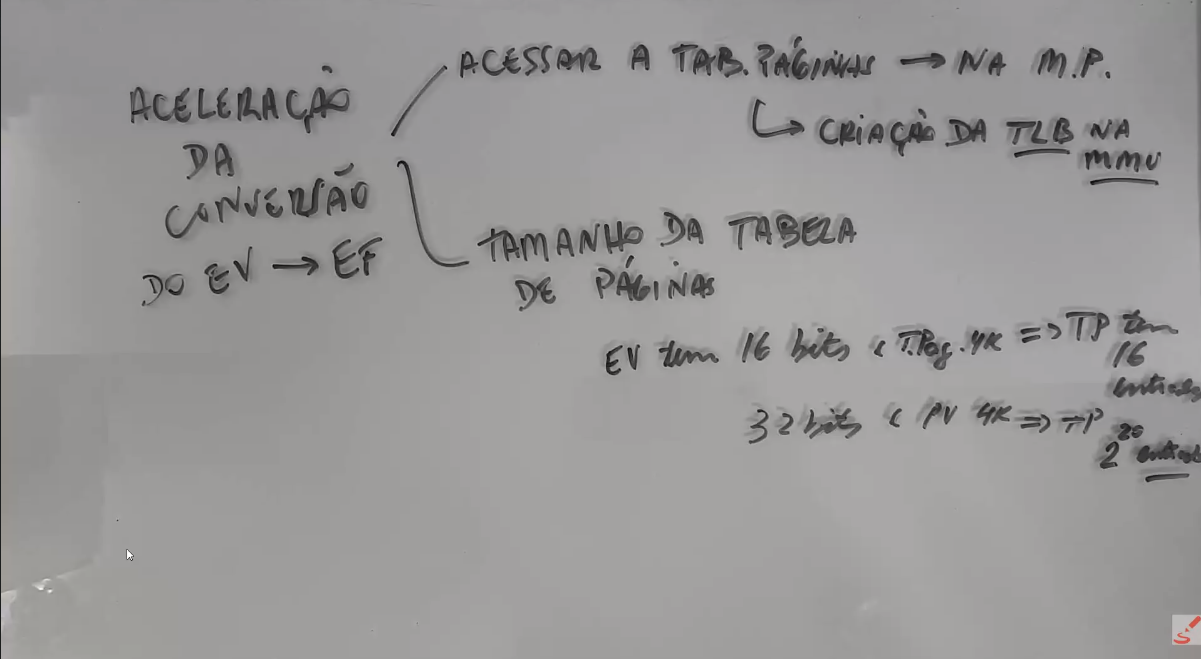 ACELERAÇÃO
DA
CONVERSÃO
DO EV → EF
ACESSAR A TAB. PÁGINAS → NA M.P.
↳ CRIAÇÃO DA TLB NA
MMU
TAMANHO DA TABELA
DE PÁGINAS
EV tem 16 bits e T.Pag. 4K => TP tem
16
entradas
32 bits e PV 4K => TP
2^20 entradas